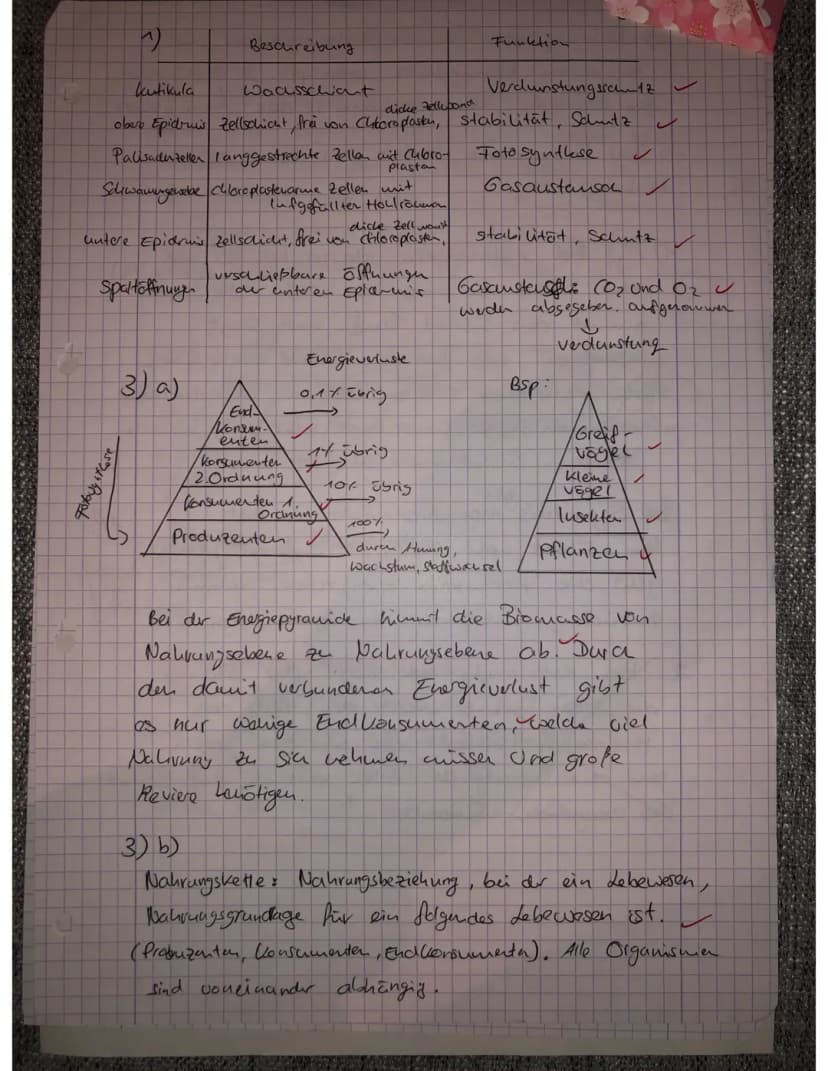 1)
Beschreibung Funktion
Kutikula Wachsschicht Verdunstungsschutz
obere Epidermis Zellschicht, frei von Chloroplasten, dicke Zellwand Stabilität, Schutz
Palisadenzellen langgestreckte Zellen mit Chloroplasten Fotosynthese
Schwammgewebe Chloroplastenarme Zellen mit
luftgefüllten Hohlräumen Gasaustausch
untere Epidermis Zellschicht, frei von Chloroplasten, dicke Zellwand Stabilität, Schutz
Spaltöffnungen verschließbare Öffnungen
der unteren Epidermis Gasaustausch: CO2 und O2
werden abgegeben. aufgenommen
↓
Verdunstung
3) a)
Energieverluste
Fotosynthese
End-
konsum-
enten
0,1% übrig
Konsumenten
2. Ordnung
1% übrig
Konsumenten 1.
Ordnung
10% übrig
Produzenten
100%
durch Atmung,
Wachstum, Stoffwechsel
Bsp:
Greif-
vögel
Kleine
Vögel
Insekten
Pflanzen
Bei der Energiepyramide nimmt die Biomasse von
Nahrungsebene zu Nahrungsebene ab. Durch
den damit verbundenen Energieverlust gibt
es nur wenige Endkonsumenten, welche viel
Nahrung zu sich nehmen müssen und große
Reviere benötigen.
3) b)
Nahrungskette: Nahrungsbeziehung, bei der ein Lebewesen,
Nahrungsgrundlage für ein folgendes Lebewesen ist.
(Produzenten, Konsumenten, Endkonsumenten). Alle Organismen
sind voneinander abhängig.